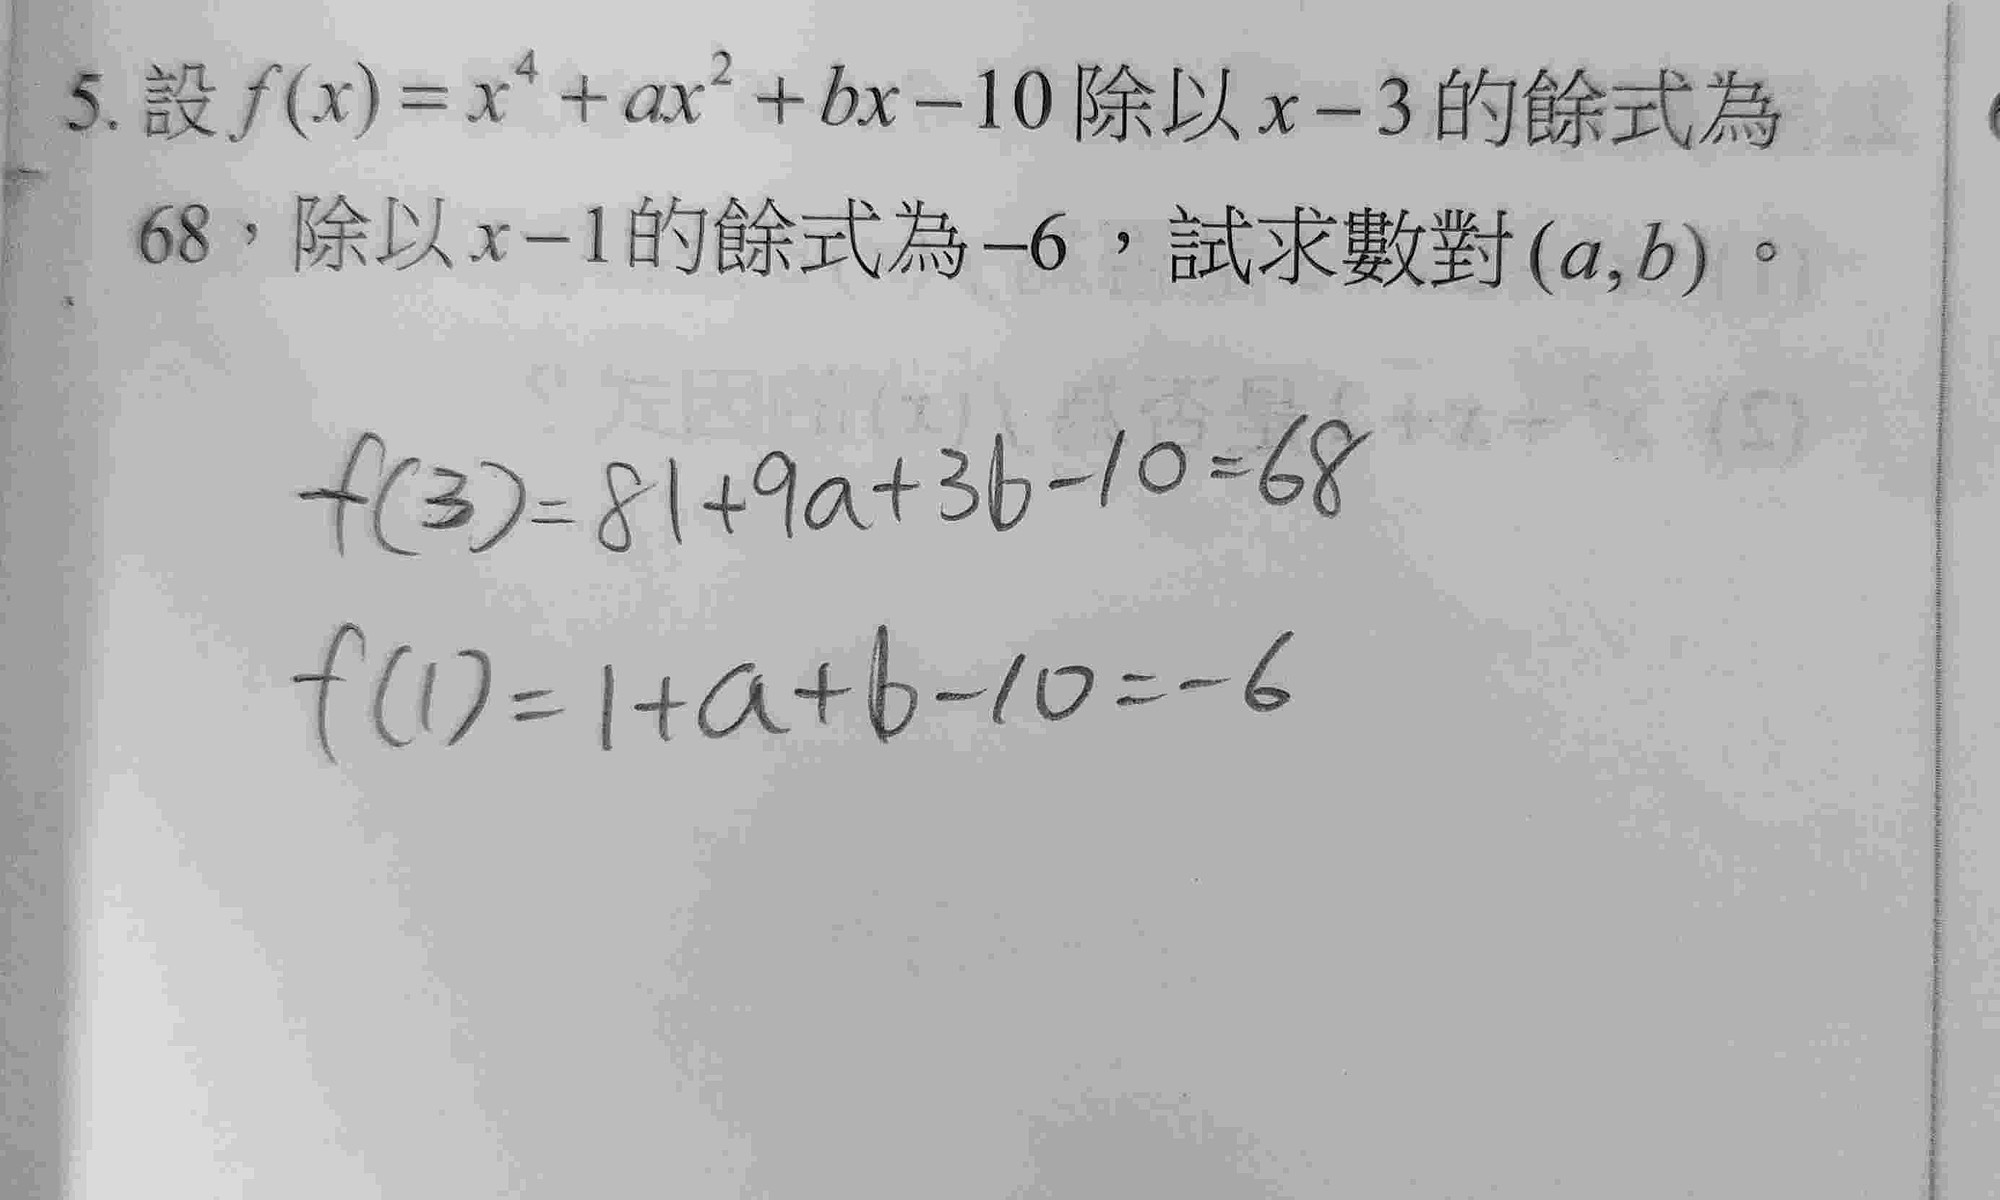 5. 設 f(x) = x⁴ + ax² + bx − 10 除以 x − 3 的餘式為
68，除以 x − 1 的餘式為 −6，試求數對 (a, b)。
f(3) = 81 + 9a + 3b − 10 = 68
f(1) = 1 + a + b − 10 = −6